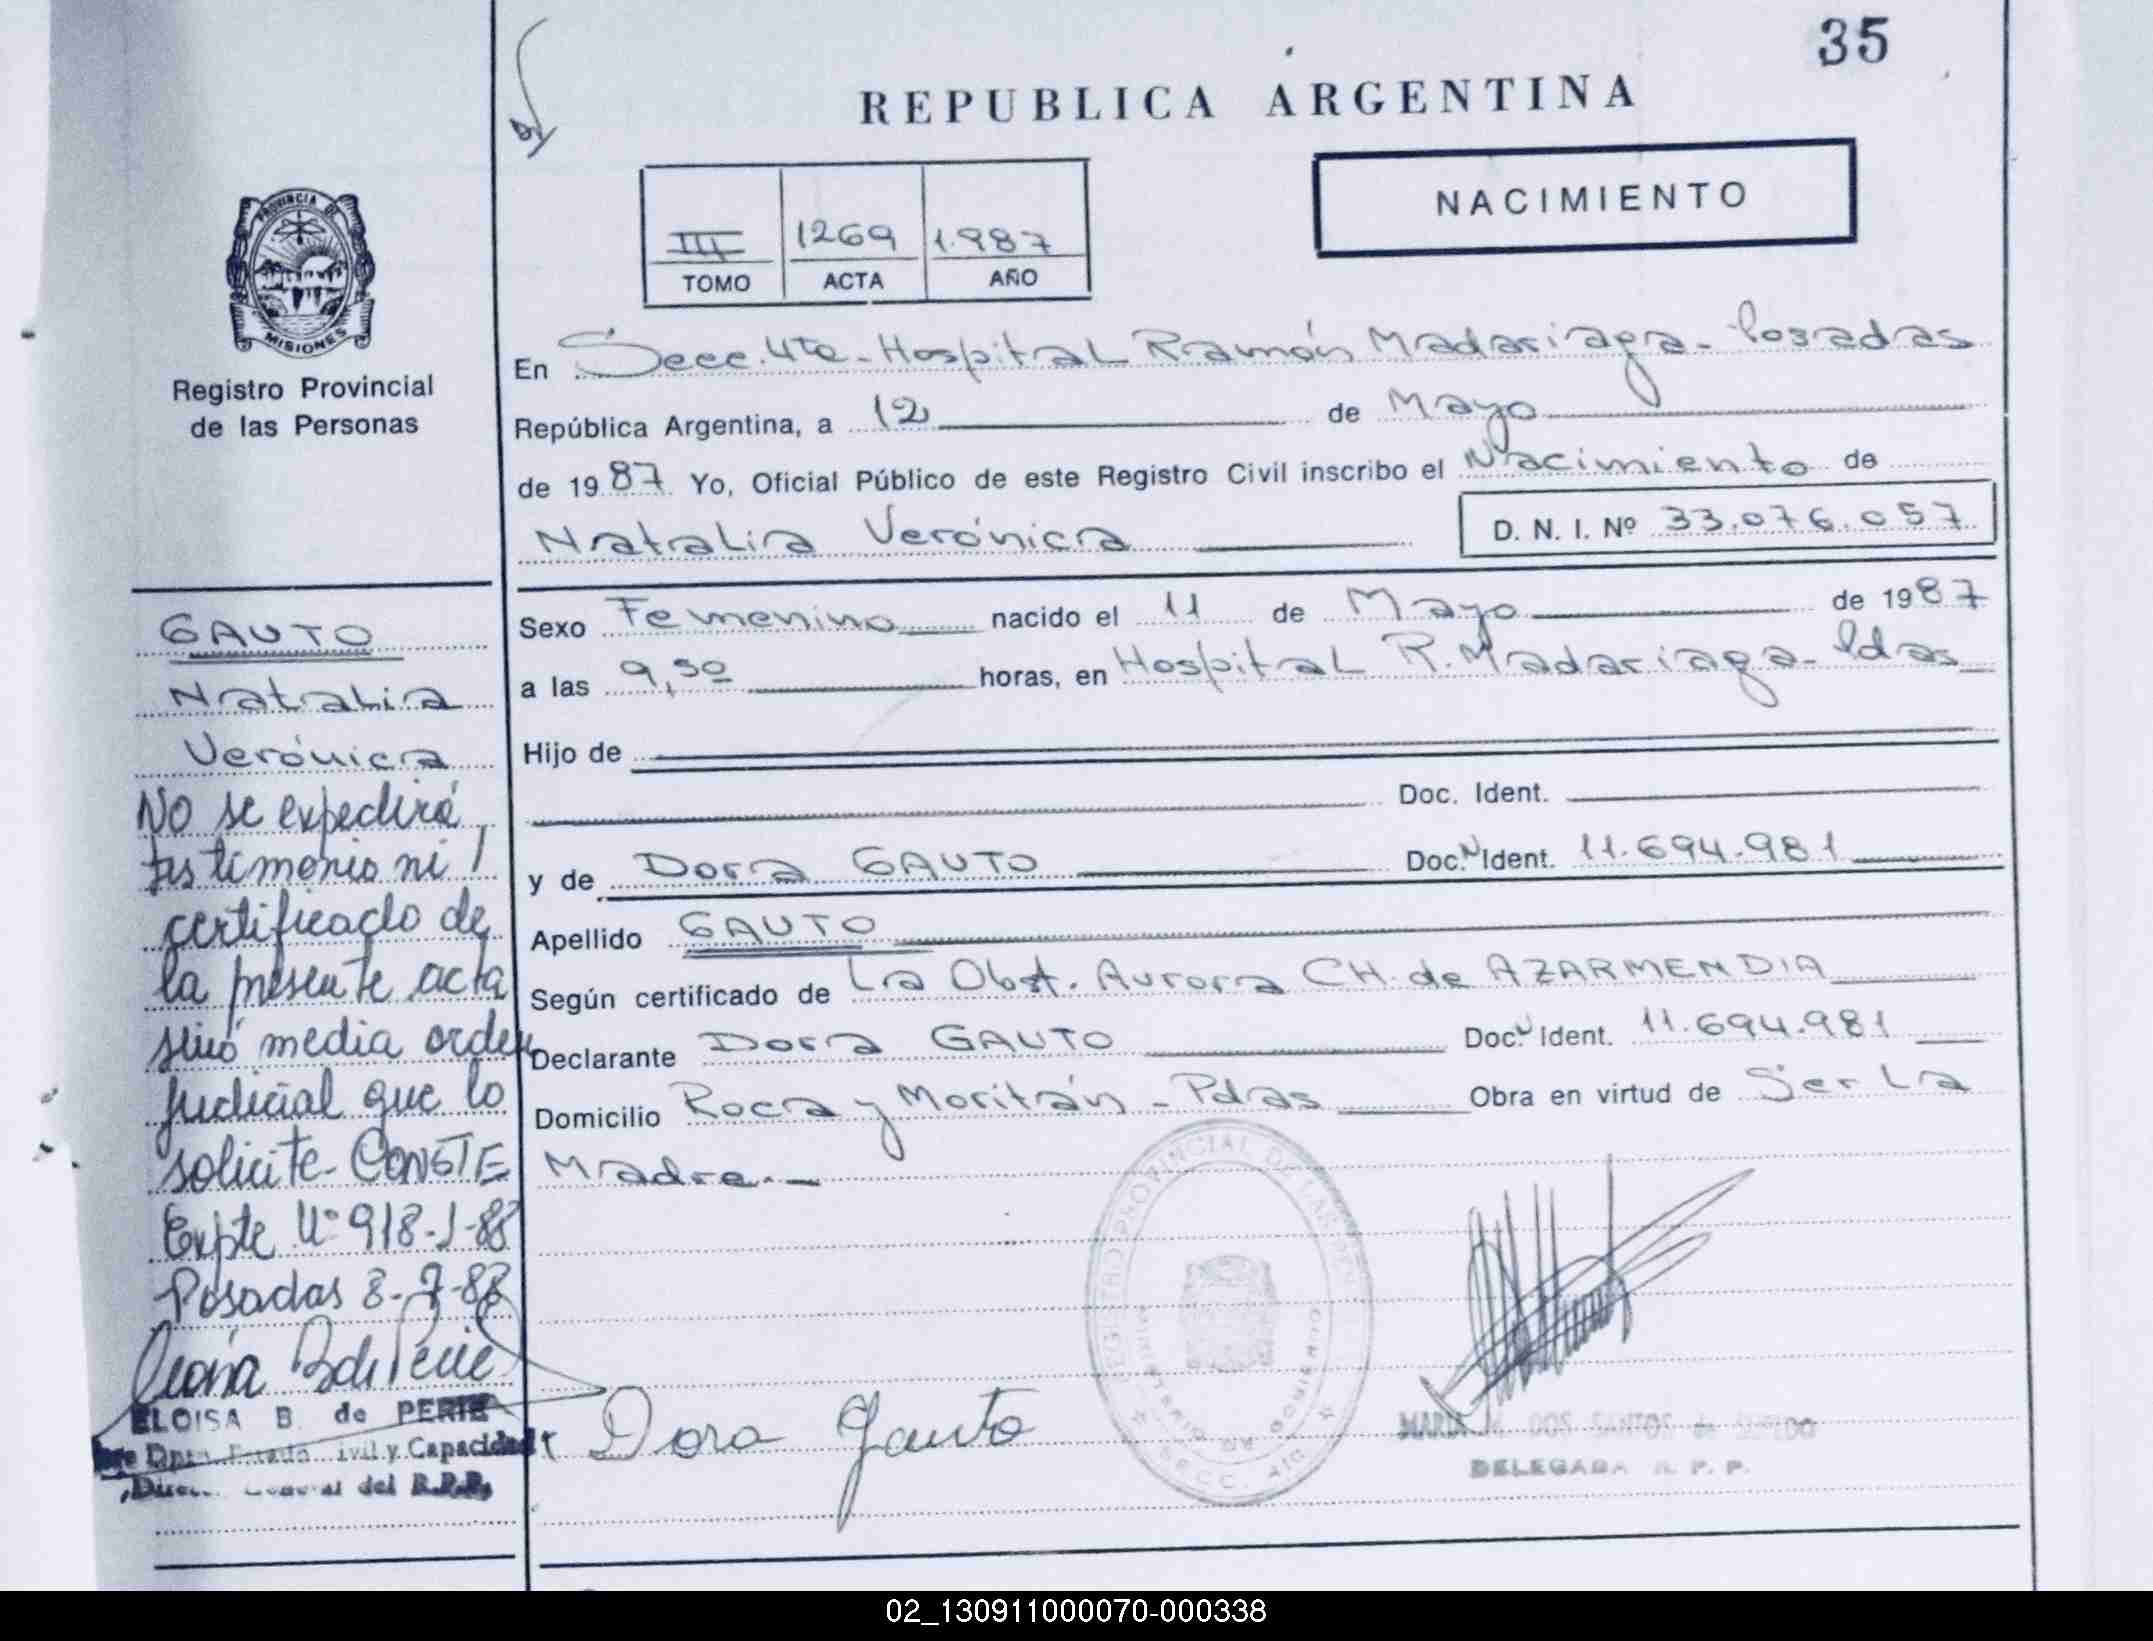 35
REPUBLICA ARGENTINA
NACIMIENTO
III 1269 1.987
TOMO ACTA AÑO
PROVINCIA DE
MISIONES
Registro Provincial
de las Personas
En Secc. 4ta - Hospital Ramón Madariaga - Posadas
República Argentina, a 12 de Mayo
de 1987 Yo, Oficial Público de este Registro Civil inscribo el Nacimiento de
Natalia Verónica D. N. I. Nº 33.076.057
Sexo Femenino nacido el 11 de Mayo de 1987
a las 9,30 horas, en Hospital R. Madariaga - Pdas
Hijo de
Doc. Ident.
y de Dora GAUTO Doc. Ident. 11.694.981
Apellido GAUTO
Según certificado de La Obst. Aurora CH. de AZARMENDIA
Declarante Dora GAUTO Doc. Ident. 11.694.981
Domicilio Roca y Moritán - Pdas Obra en virtud de Ser La
Madre.-
GAUTO
Natalia
Verónica
No se expedirá
testimonio ni
certificado de
la presente acta
sinó media orden
judicial que lo
solicite - CONSTE
Expte Nº 918-J-88
Posadas 8-7-88
ELOISA B. de PERIE
Civil y Capacidad
General del R.P.P.
Dora Gauto
REGISTRO PROVINCIAL DE LAS
MINISTERIO DE GOBIERNO
SECC.
MARIA DOS SANTOS de
DELEGADA R. P. P.
02_130911000070-000338